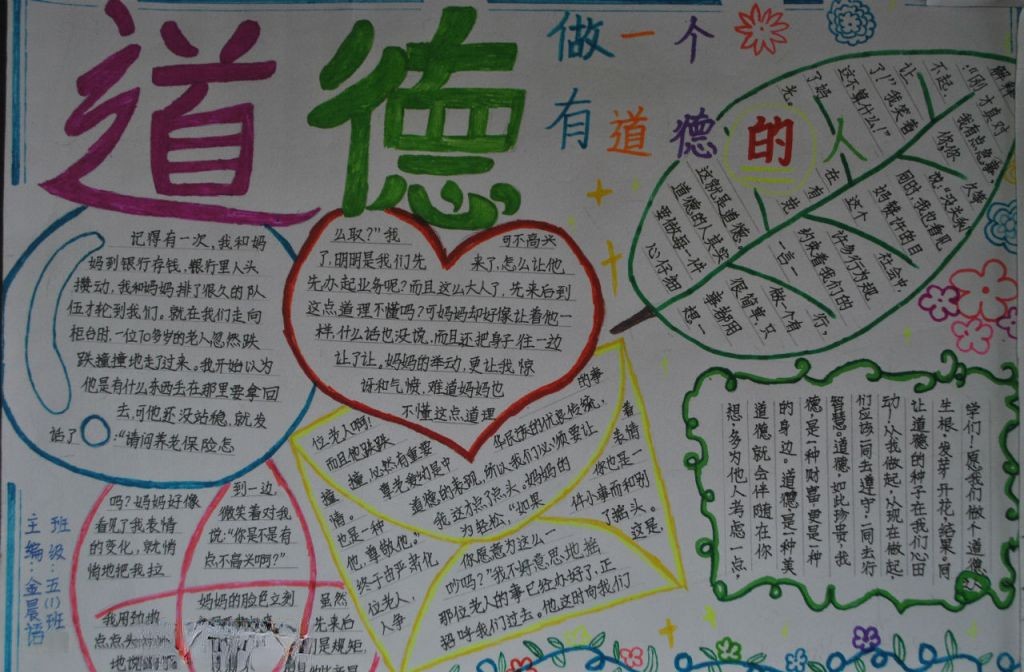 道德
做一个
有道德的人
记得有一次,我和妈
妈到银行存钱,银行里人头
攒动,我和妈妈排了很久的队
伍才轮到我们。就在我们走向
柜台时,一位70多岁的老人忽然跌
跌撞撞地走了过来。我开始以为
他是有什么东西丢在那里要拿回
去,可他还没站稳,就发
话了:“请问养老保险怎
么取?”我
可不高兴
了,明明是我们先
来了,怎么让他
先办起业务呢?而且这么大人了,先来后到
这点道理不懂吗?可妈妈却好像让着他一
样,什么话也没说,而且还把身子往一边
让了让。妈妈的举动,更让我惊
讶和气愤,难道妈妈也
不懂这点道理
吗?妈妈好像
看见了我表情
的变化,就悄
悄地把我拉
到一边,
微笑着对我
说:“你是不是有
点不高兴啊?”
我用劲地
点点头
妈妈的脸色立刻
虽然
先来后
是规矩,
位老人啊!
而且他跌跌
撞撞,必然有重要
情。尊老爱幼是中
华民族的优良传统,
也是一种道德的表现,所以我们必须要让
他,尊敬他。”我这才点了点头,妈妈的
表情
终于由严肃化为轻松,“如果
你也是一
位老人,
你愿意为这么一
件小事而和别
人争吵吗?”我不好意思地摇
了摇头。
这是,
那位老人的事已经办好了,正
招呼我们过去。他这时向我们
解释
:“刚才真对
不起,我有点急事,
让你
了!”我笑着
说:“没关系,
这不算什么!”
同时,我也看见
了妈妈
光。
在这个
社会中,
有许多行为规
约束着我们的
一言一行。
做一个有
这就是道德,
道德的人其实
很简单,只
要做每一件
事都用
心仔细
想一
想,多为他人考虑一点,
道德就会伴随在你
的身边。道德是一种美
德,是一种财富,更是一种
智慧。道德如此珍贵,我
们应该一同去遵守,一同去行
动,从我做起,从现在做起,
让道德的种子在我们心田
生根,发芽,开花,结果。同
学们!愿我们做个道德
班级:五(1)班
主编:金晨语